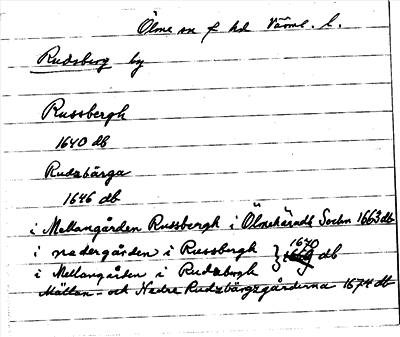 Ölme sn f hd Värml. l.
Rudsberg by
Russbergh
1640 db
Rudzbärga
1646 db
i Mellangården Russbergh i Ölmehäradz Sochn 1663 db
i nedergården i Russbergh } 1670 db
i Mellangården i Rudzbergh
Mällan- och Nedre Rudzbärgzgårderna 1674 db